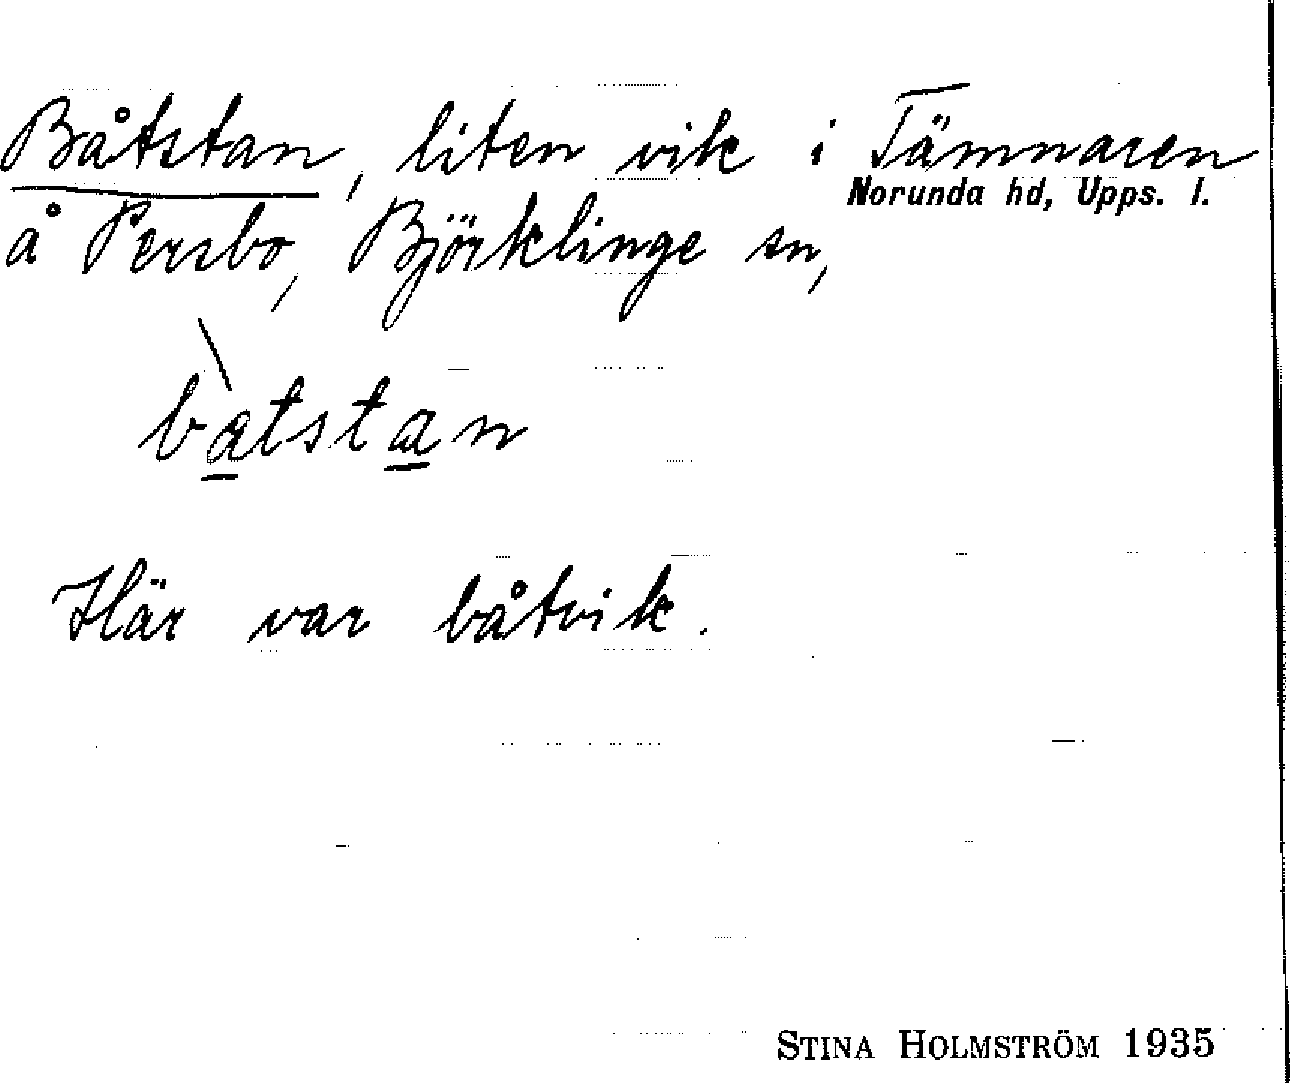 Båtstan, liten vik i Tämnaren
Norunda hd, Upps. l.
å Persbo, Björklinge sn,
bàtstan
Här var båtvik.
STINA HOLMSTRÖM 1935